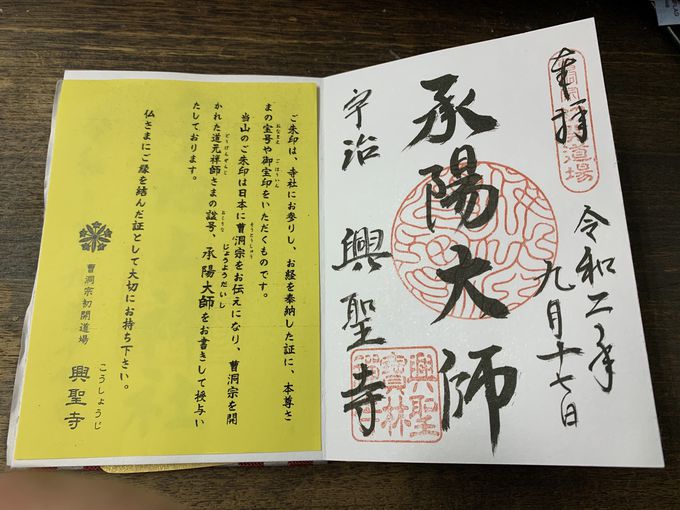 奉拝
道場
令和二年
九月十七日
承陽大師
宇治 興聖寺
興聖
寶林
ご朱印は、寺社にお参りし、お経を奉納した証に、本尊さ
まの宝号や御宝印をいただくものです。
当山のご朱印は日本に曹洞宗をお伝えになり、曹洞宗を開
かれた道元禅師さまの諡号、承陽大師をお書きして授与い
たしております。
仏さまにご縁を結んだ証として大切にお持ち下さい。
曹洞宗初開道場
こうしょうじ
興聖寺